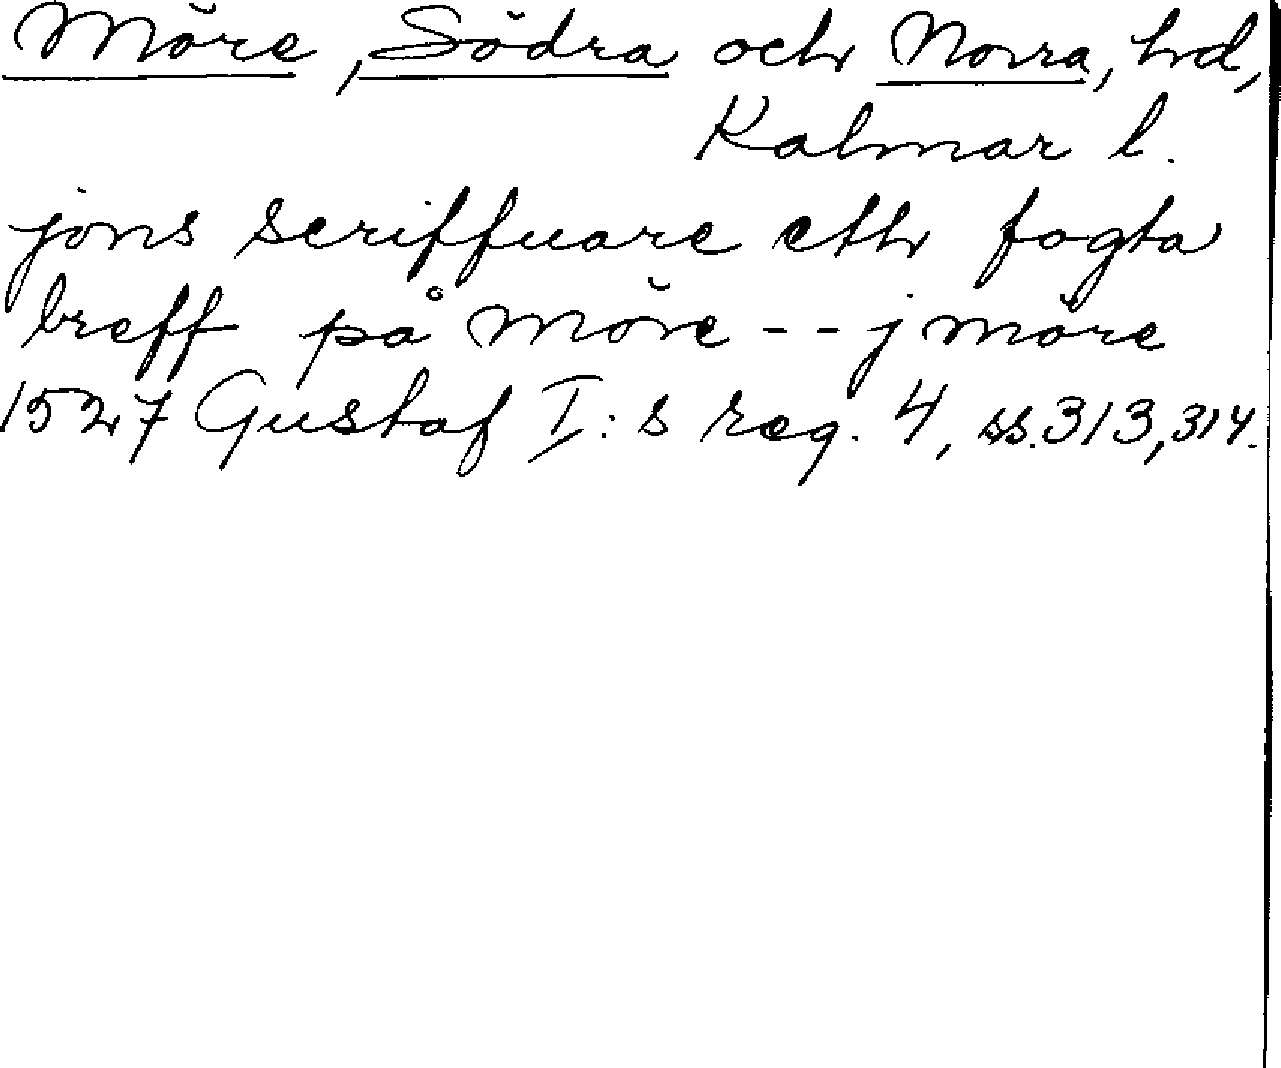 Möre, Södra och Norra, hd,
Kalmar l.
jöns scriffuare eth fogta
breff på Möre -- j möre
1527 Gustaf I:s reg. 4, ss. 313, 314.